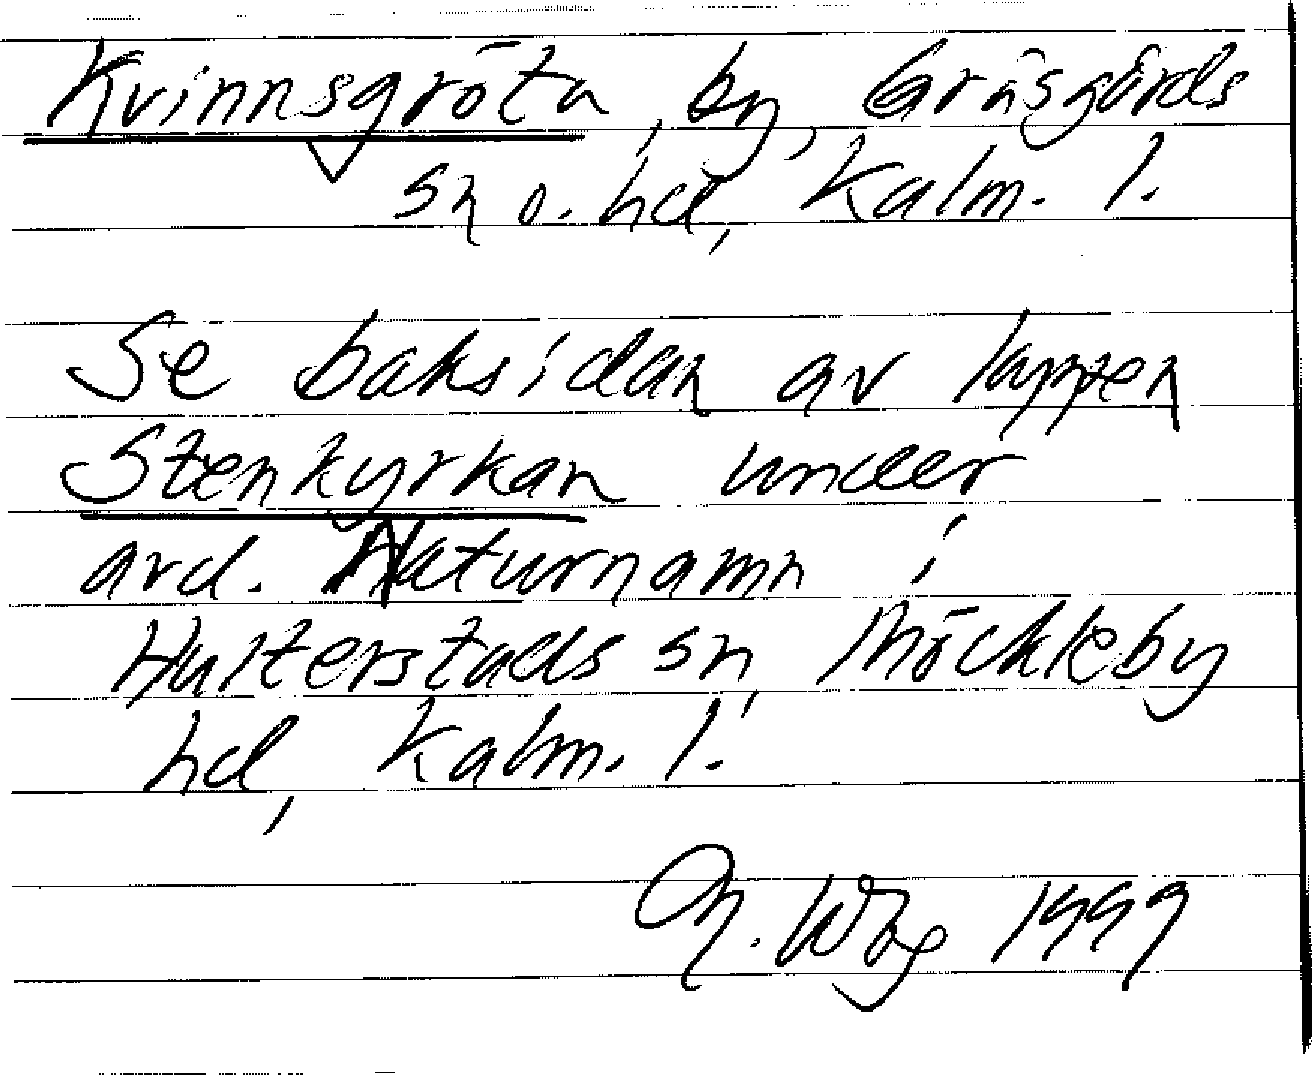 Kvinnsgröta, by, Gräsgårds
sn o. hd, Kalm. l.
Se baksidan av lappen
Stenkyrkan under
avd. Naturnamn i
Hulterstads sn, Möckleby
hd, Kalm. l.
1999